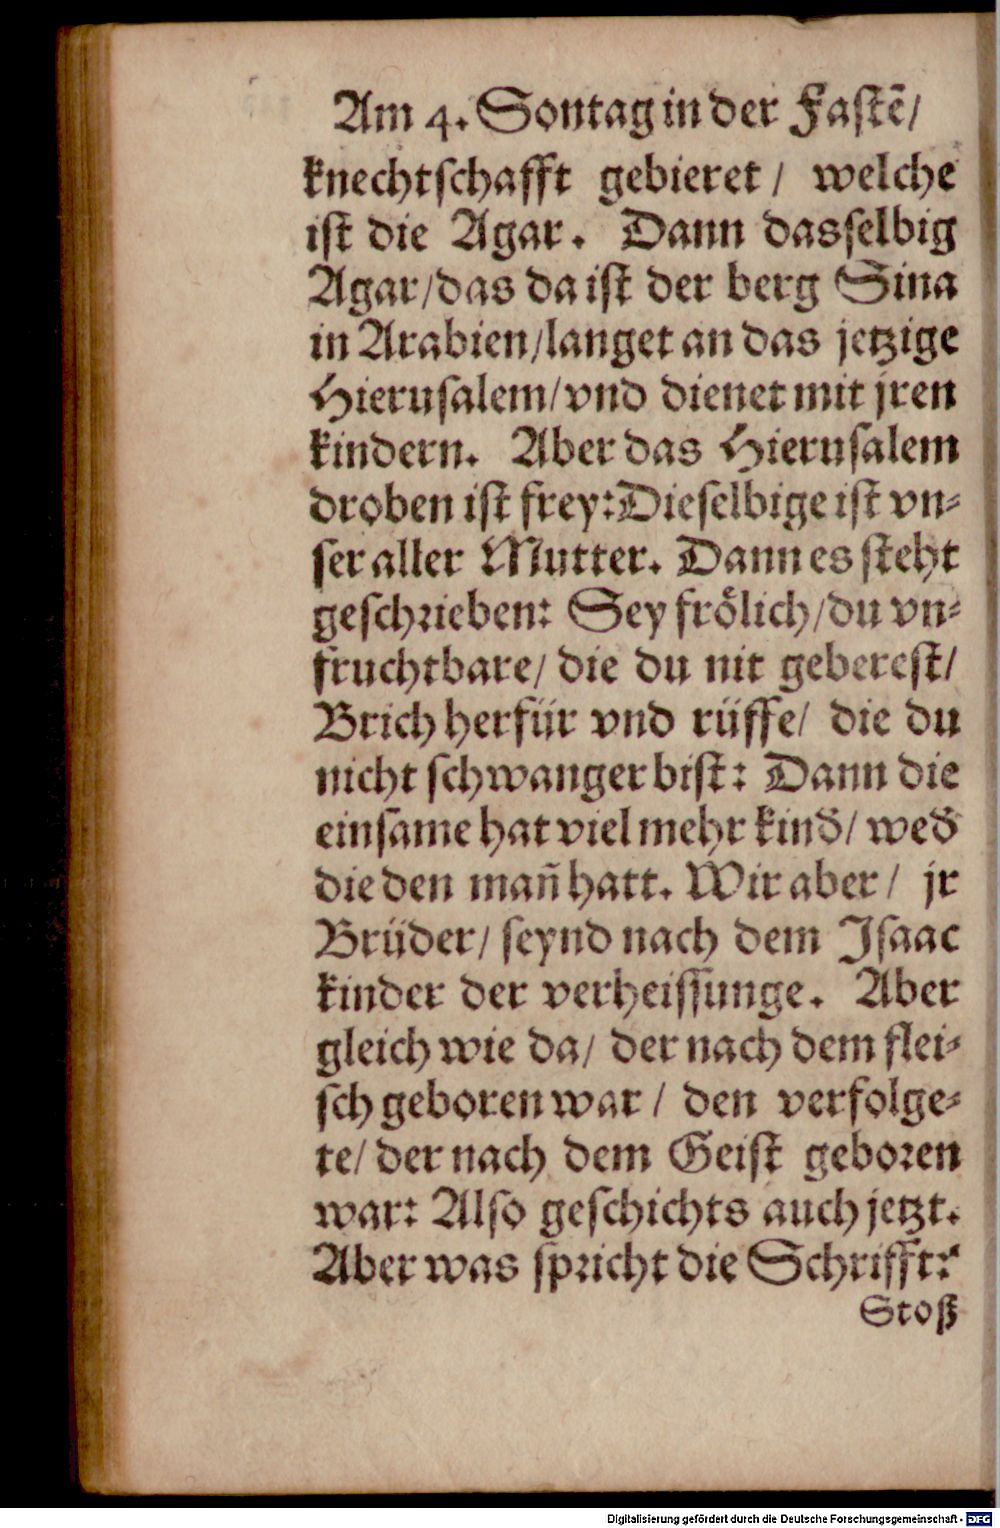 Am 4. Sontag in der Fastẽ/
knechtschafft gebieret / welche
ist die Agar. Dann dasselbig
Agar/das da ist der berg Sina
in Arabien/langet an das jetzige
Hierusalem/vnd dienet mit jren
kindern. Aber das Hierusalem
droben ist frey: Dieselbige ist vn-
ser aller Mutter. Dann es steht
geschrieben: Sey frölich/du vn-
fruchtbare/ die du nit geberest/
Brich herfür vnd rüffe/ die du
nicht schwanger bist: Dann die
einsame hat viel mehr kind̃/ wed̃
die den mañ hatt. Wir aber/ jr
Brüder/ seynd nach dem Isaac
kinder der verheissunge. Aber
gleich wie da/ der nach dem flei-
sch geboren war / den verfolge-
te/ der nach dem Geist geboren
war: Also geschichts auch jetzt.
Aber was spricht die Schrifft?
Stoß
Digitalisierung gefördert durch die Deutsche Forschungsgemeinschaft - DFG